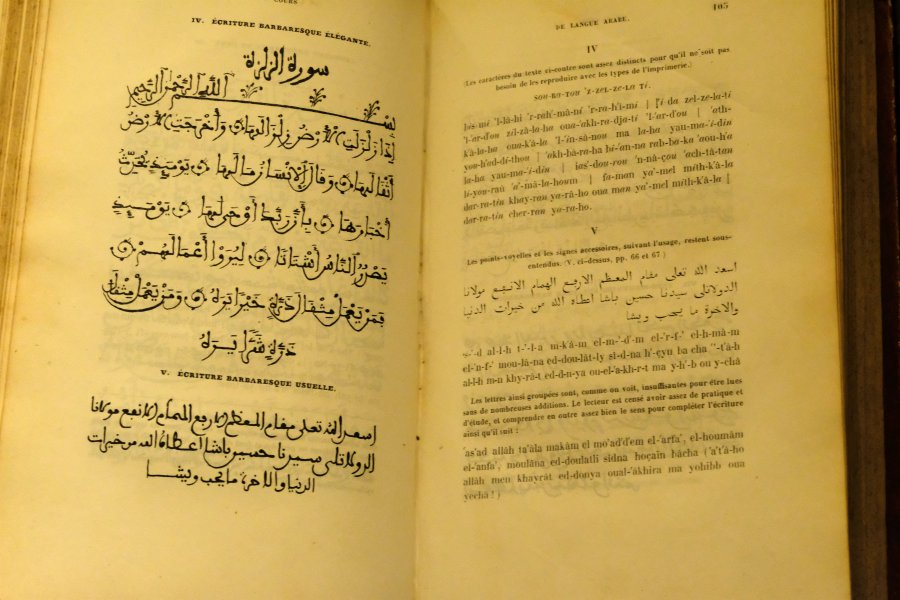 COURS
IV. ÉCRITURE BARBARESQUE ÉLÉGANTE.
سورة الزلزلة
بسم الله الرحمن الرحيم
إِذَا زُلْزِلَتِ الْأَرْضُ زِلْزَالَهَا وَأَخْرَجَتِ الْأَرْضُ
أَثْقَالَهَا وَقَالَ الْإِنْسَانُ مَا لَهَا يَوْمَئِذٍ تُحَدِّثُ
أَخْبَارَهَا بِأَنَّ رَبَّكَ أَوْحَى لَهَا يَوْمَئِذٍ
يَصْدُرُ النَّاسُ أَشْتَاتًا لِيُرَوْا أَعْمَالَهُمْ
فَمَنْ يَعْمَلْ مِثْقَالَ ذَرَّةٍ خَيْرًا يَرَهُ وَمَنْ يَعْمَلْ مِثْقَالَ
ذَرَّةٍ شَرًّا يَرَهُ
V. ÉCRITURE BARBARESQUE USUELLE.
اسعد الله تعلى مقام المعظم الارفع الهمام الانفع مولانا
الدولاتلى سيدنا حسين باشا اعطاه الله من خيرات
الدنيا والاخرة ما يحب ويشا
DE LANGUE ARABE.
105
IV
(Les caractères du texte ci-contre sont assez distincts pour qu'il ne soit pas
besoin de les reproduire avec les types de l'imprimerie.)
SOU-RA-TOU 'Z-ZEL-ZE-LA TI.
bis-mi 'l-lâ-hi 'r-rah'-mâ-ni 'r-ra-h'i-mi | 'i-da zel-ze-la-ti
'l-'ar-d'ou zil-zâ-la-ha oua-'akh-ra-dja-ti 'l-'ar-d'ou | 'ath-
k'â-la-ha oua-k'â-la 'l-'in-sâ-nou ma la-ha yau-ma-'i-din
you-h'ad-di-thou | 'akh-bâ-ra-ha bi-'an-na rab-ba-ka 'aou-h'a
la-ha yau-ma-'i-din | ias'-dou-rou 'n-nâ-çou 'ach-tâ-tan
li-you-rau 'a'-mâ-la-houm | fa-man ya'-mel mith-k'â-la
dar-ra-tin khay-ran ya-râ-ho oua man ya'-mel mith-k'â-la |
dar-ra-tin cher-ran ya-ra-ho.
V
Les points-voyelles et les signes accessoires, suivant l'usage, restent sous-
entendus. (V. ci-dessus, pp. 66 et 67.)
اسعد الله تعلى مقام المعظم الارفع الهمام الانفع مولانا
الدولاتلى سيدنا حسين باشا اعطاه الله من خيرات الدنيا
والاخرة ما يحب ويشا
el-h-mâm
el-'n-f-' mou-lâ-na ed-dou-lât-ly si-d-na h'-çyn ba cha
al-l-h m-n khy-râ-t ed-d-n-ya ou-el-'a-kh-r-t ma y-h'-b ou y-châ
Les lettres ainsi groupées sont, comme on voit, insuffisantes pour être lues
sans de nombreuses additions. Le lecteur est censé avoir assez de pratique et
d'étude, et comprendre en outre assez bien le sens pour compléter l'écriture
ainsi qu'il suit :
'as'ad allâh ta'àla makâm el mo'ad'd'em el-'arfa', el-houmâm
el-'anfa', moulâna ed-doulatli sidna hoçain bâcha ('a'tâ-ho
allâh men khayrât ed-donya oual-'âkhira ma yohibb oua
yechâ!)